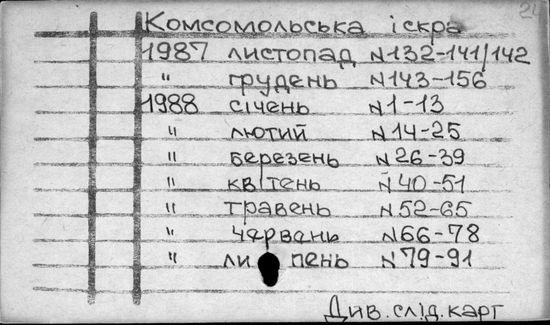 Комсомольська іскра
1987 листопад N132-141/142
" грудень N143-156
1988 січень N1-13
" лютий N14-25
" березень N26-39
" квітень N40-51
" травень N52-65
" червень N66-78
" ли пень N79-91
Див. слід. карт